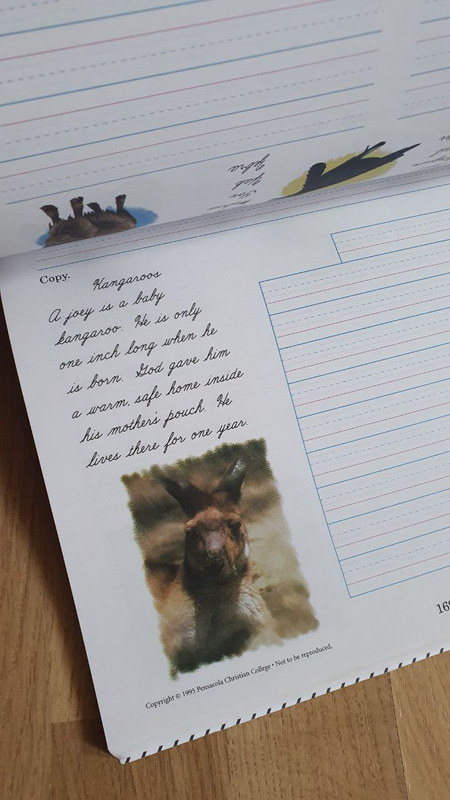 Copy.
Kangaroos
A joey is a baby
kangaroo. He is only
one inch long when he
is born. God gave him
a warm, safe home inside
his mother's pouch. He
lives there for one year.
Copyright © 1995 Pensacola Christian College • Not to be reproduced.